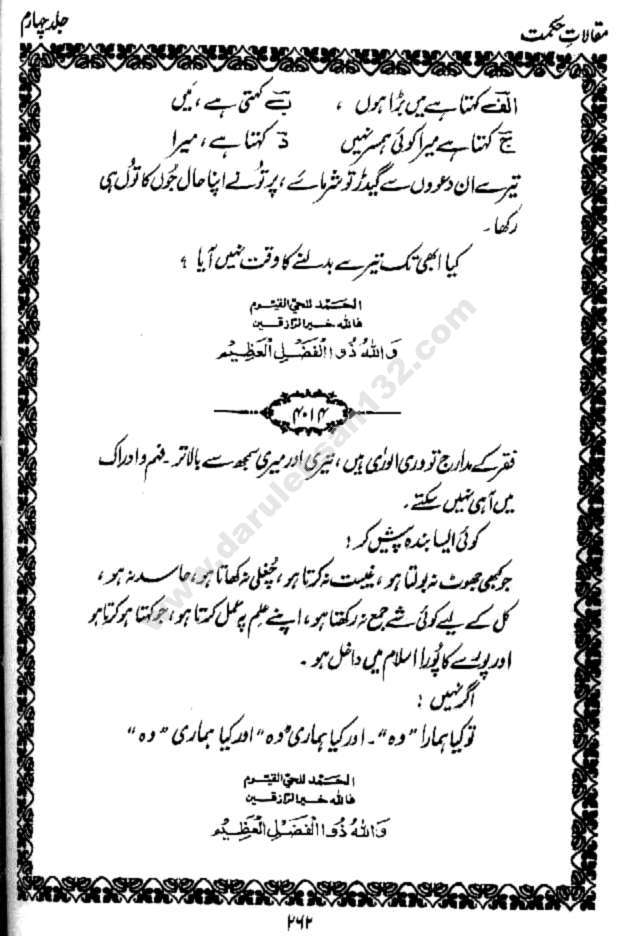 مقالاتِ حکمت
جلد چہارم
الف کہتا ہے میں بڑا ہوں ، ب کہتی ہے ، میں
ج کہتا ہے میرا کوئی ہمسر نہیں د کہتا ہے ، میرا
تیرے ان دعووں سے گیدڑ تو شرمائے ، پر تُو نے اپنا حال جُوں کا توُں ہی
رکھا ۔
کیا ابھی تک تیرے بدلنے کا وقت نہیں آیا ؟
الحمد للحی القیوم
فاللہ خیر الرازقین
وَاللّٰهُ ذُو الْفَضْلِ الْعَظِيْمِ
۴۰۱۴
فقر کے مدارج تو وری الورٰی ہیں ، تیری اور میری سمجھ سے بالاتر ۔ فہم و ادراک
میں آ ہی نہیں سکتے ۔
کوئی ایسا بندہ پیش کر :
جو کبھی جھوٹ نہ بولتا ہو ، غیبت نہ کرتا ہو ، چغلی نہ کھاتا ہو ، حاسد نہ ہو ،
کل کے لیے کوئی شے جمع نہ رکھتا ہو ، اپنے علم پر عمل کرتا ہو ، جو کہتا ہو کرتا ہو
اور پورے کا پُورا اسلام میں داخل ہو ۔
اگر نہیں :
تو کیا ہمارا "وہ" ۔ اور کیا ہماری "وہ" اور کیا ہماری "وہ"
الحمد للحی القیوم
فاللہ خیر الرازقین
وَاللّٰهُ ذُو الْفَضْلِ الْعَظِيْمِ
۲۶۲
www.darulehsan132.com